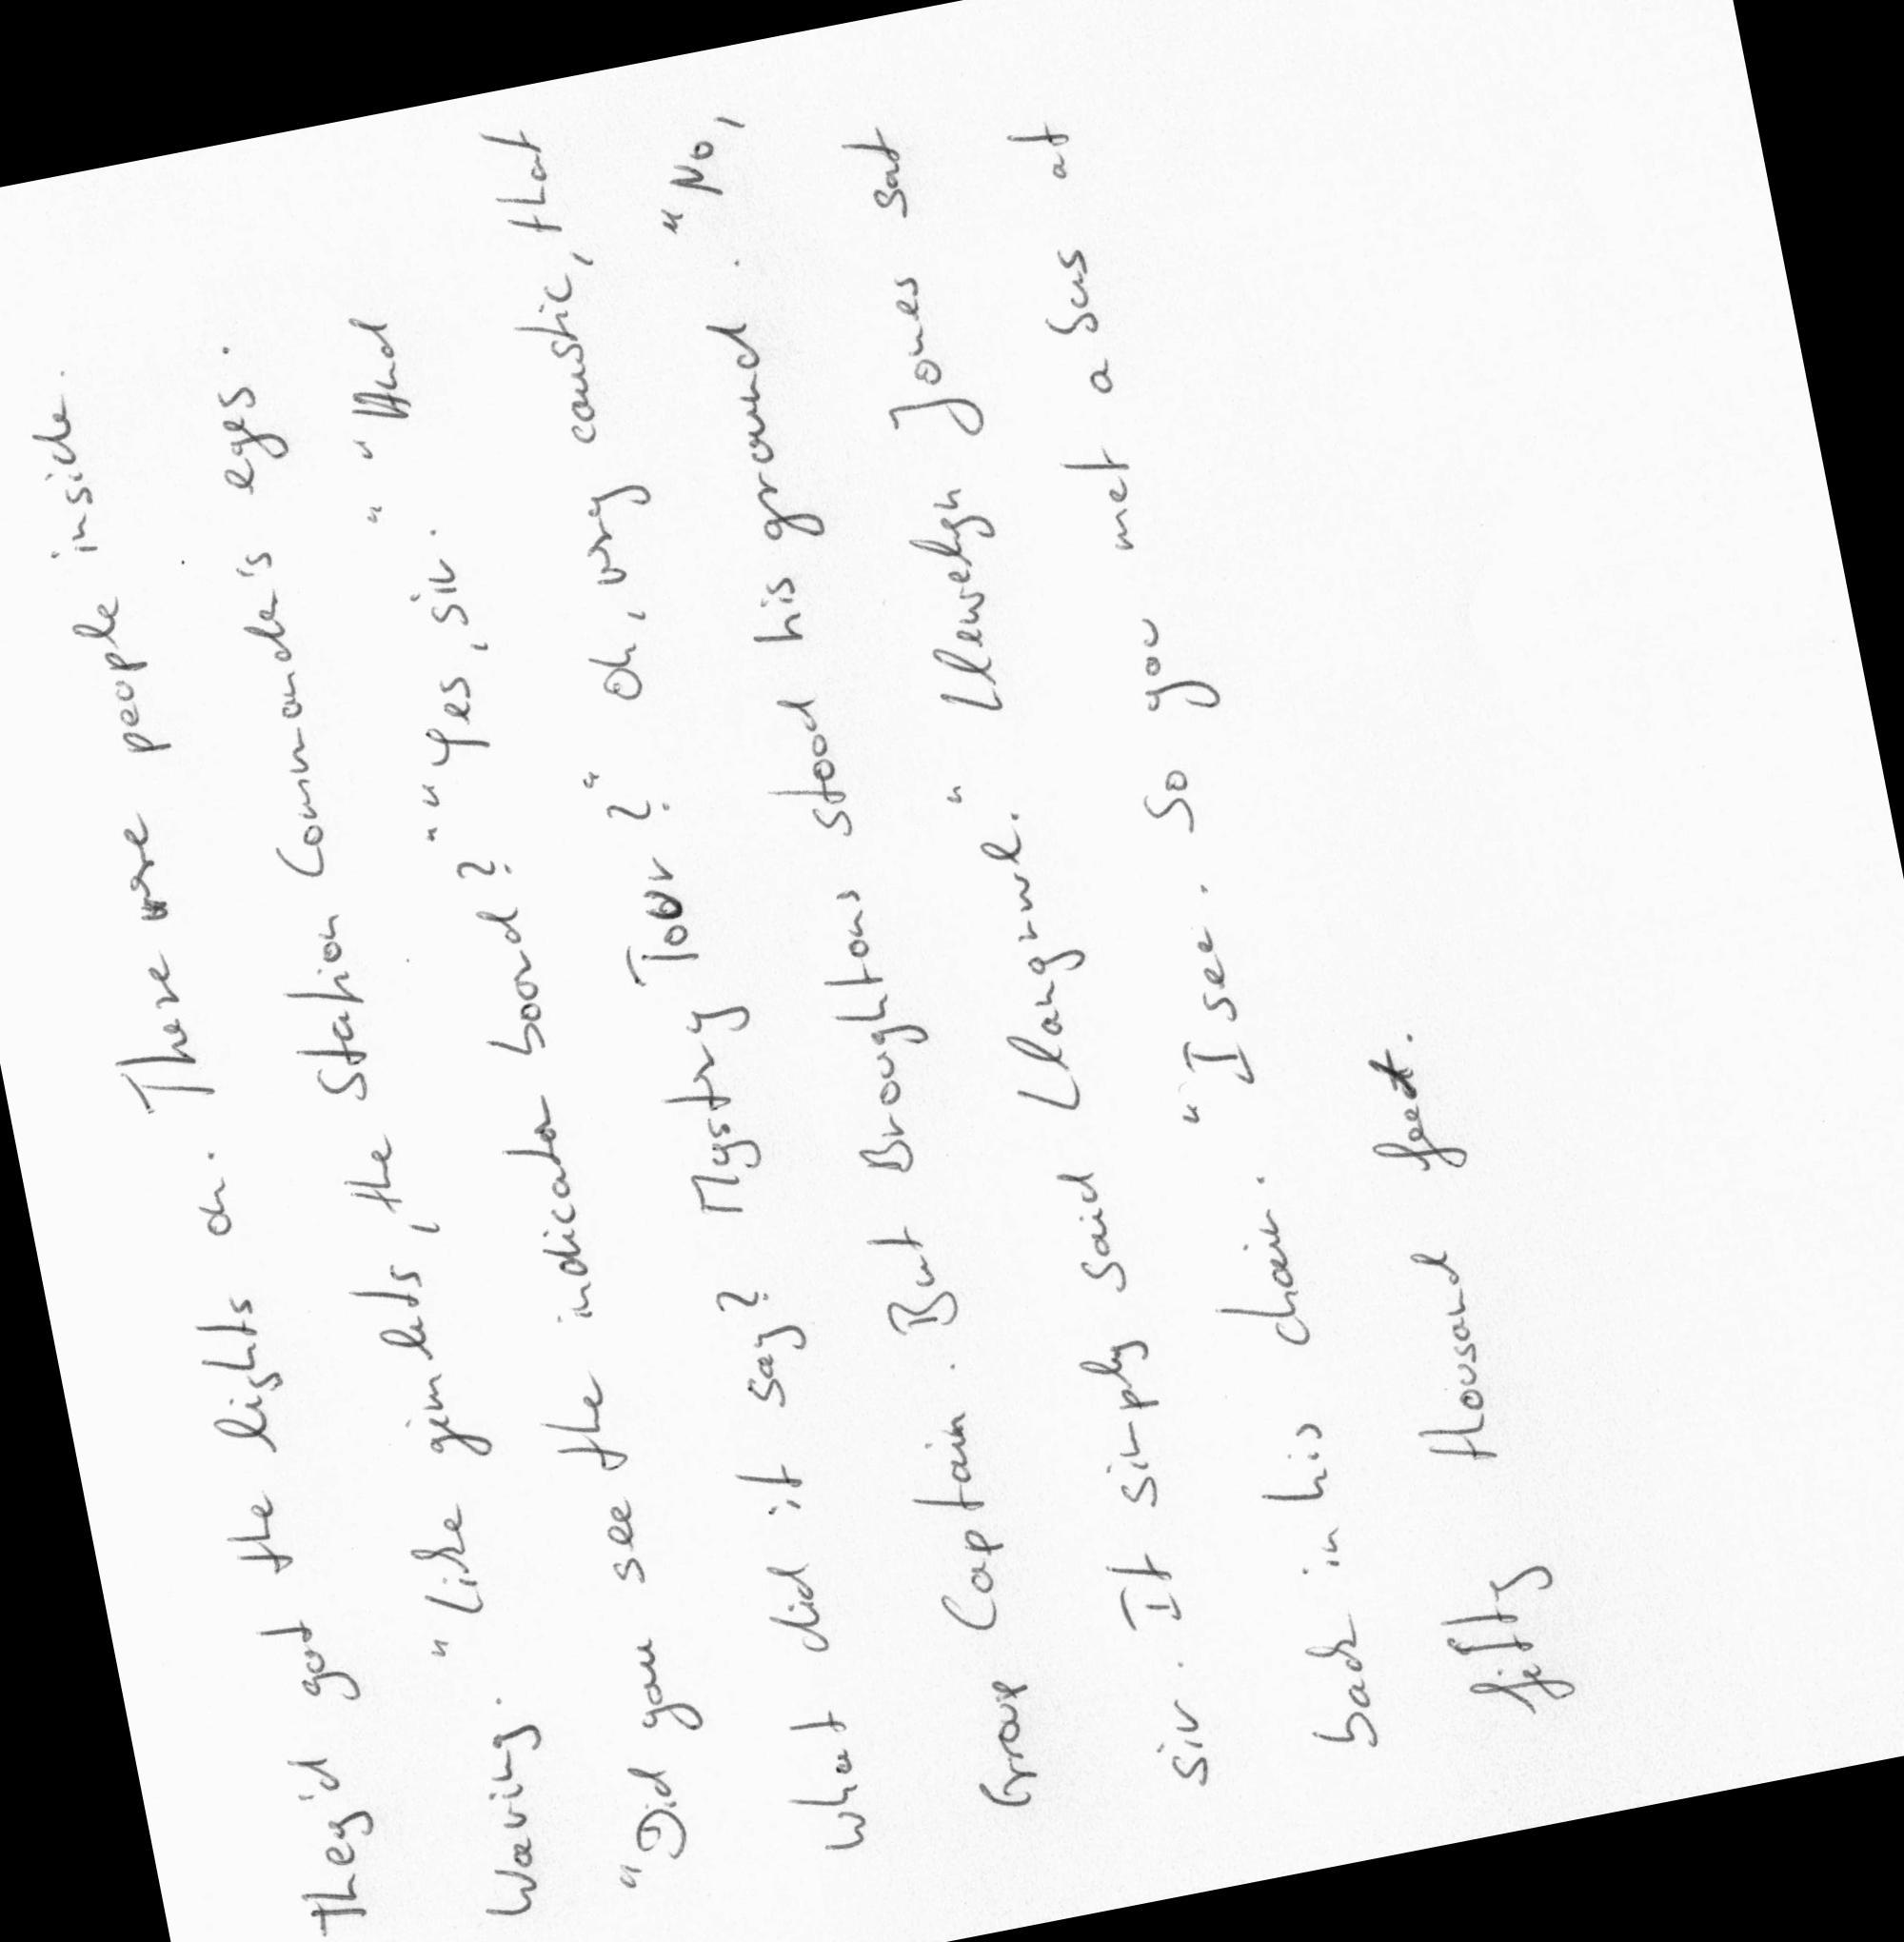 they'd got the lights on. There were people inside.
Waving. "Like gimlets, the Station Commander's eyes.
"Did you see the indicator board?" "Yes, sir." "And
what did it say? Mystery Tour?" Oh, very caustic, that
Group Captain. But Broughtons stood his ground. "No,
sir. It simply said Llangrwl." Llewelyn Jones sat
back in his chair. "I see. So you met a bus at
fifty thousand feet.